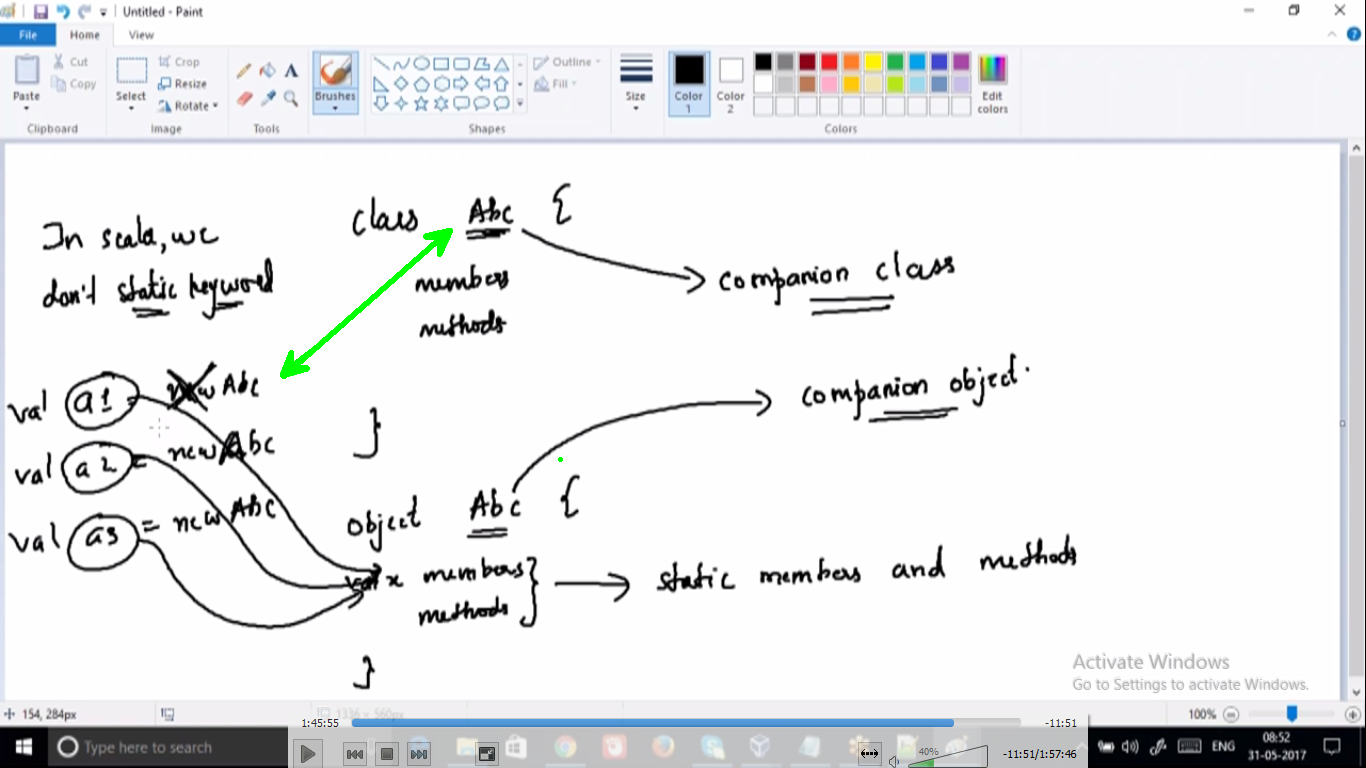 Untitled - Paint
File Home View
Paste
Cut
Copy
Clipboard
Select
Crop
Resize
Rotate
Image
Tools
Brushes
Shapes
Outline
Fill
Size
Color 1
Color 2
Edit colors
Colors
In scala, we
don't static keyword
class Abc {
members
methods
}
companion class
val a1 new Abc
val a2 = new Abc
val a3 = new Abc
companion object.
object Abc {
val x members }
methods
}
static members and methods
Activate Windows
Go to Settings to activate Windows.
154, 284px
1336 × 560px
100%
1:45:55
-11:51
Type here to search
40%
-11:51/1:57:46
ENG
08:52
31-05-2017